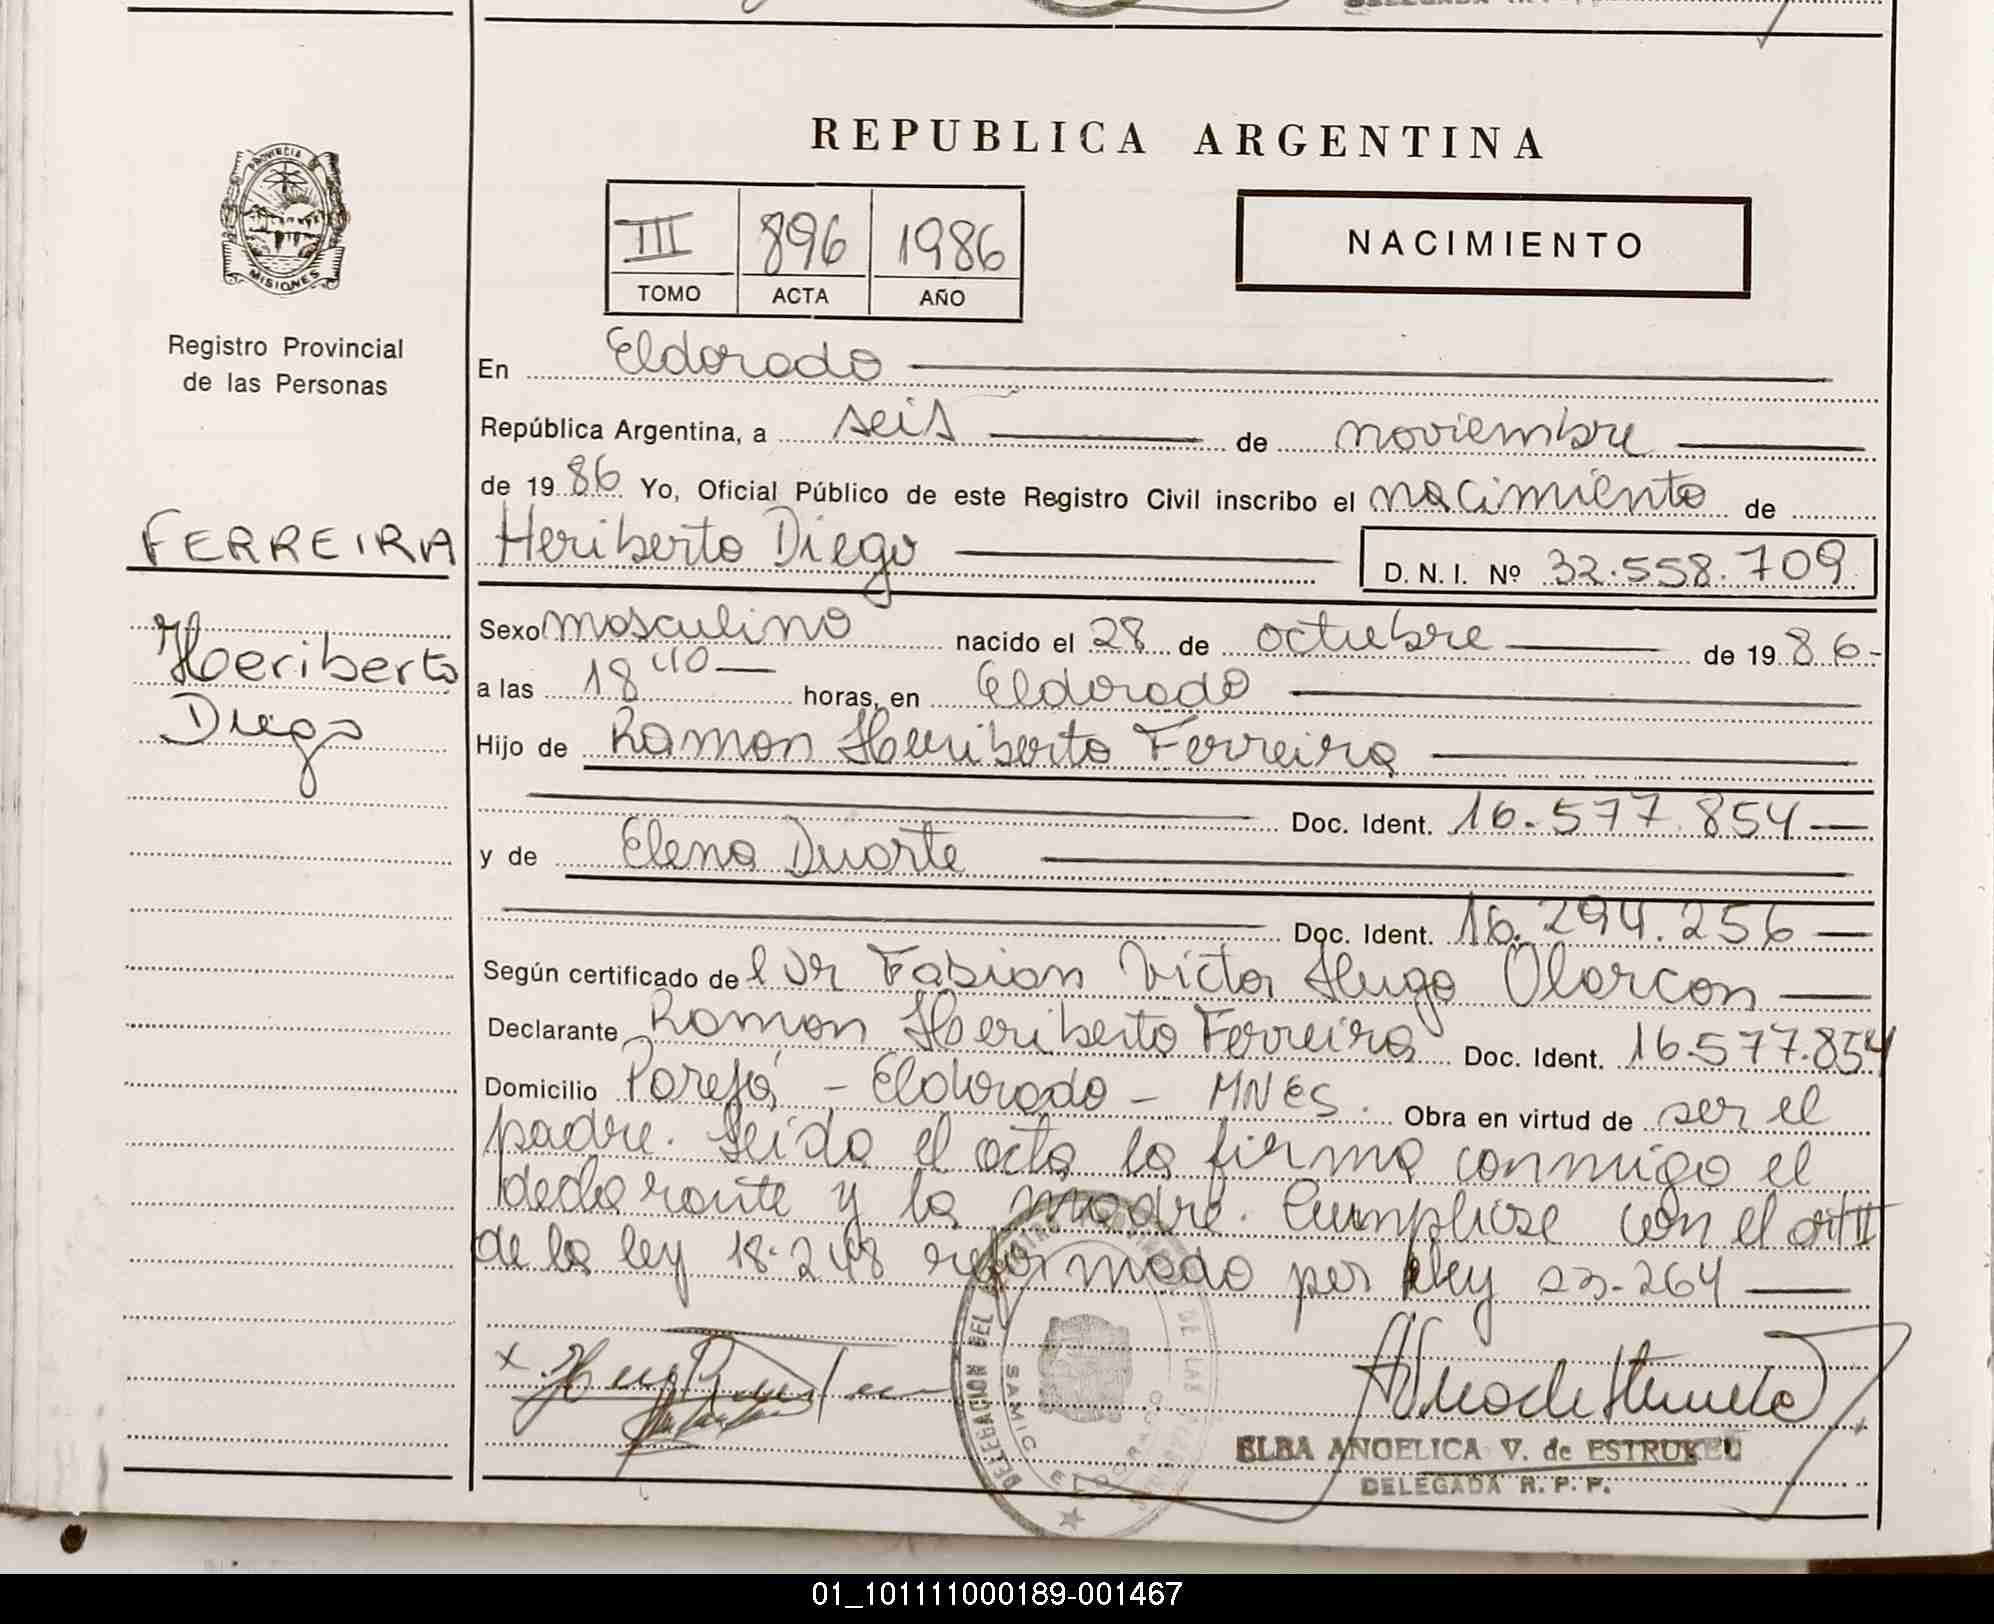 REPUBLICA ARGENTINA
PROVINCIA DE
MISIONES
III 896 1986
TOMO ACTA AÑO
NACIMIENTO
Registro Provincial
de las Personas
FERREIRA
Heriberto
Diego
En Eldorado
República Argentina, a seis de noviembre
de 1986 Yo, Oficial Público de este Registro Civil inscribo el nacimiento de
Heriberto Diego D. N. I. Nº 32.558.709
Sexo masculino nacido el 28 de octubre de 1986-
a las 18 horas, en Eldorado
Hijo de Ramon Heriberto Ferreira
Doc. Ident. 16.577.854
y de Elena Duarte
Doc. Ident. 16.294.256
Según certificado del Dr Fabian Victor Hugo Olarcon
Declarante Ramon Heriberto Ferreira Doc. Ident. 16.577.854
Domicilio - Eldorado - MNES. Obra en virtud de ser el
padre. Leida el acta la firma conmigo el
declarante y la madre. Cumpliose con el art II
de la ley 18.248 reformada por ley 23.264
DELEGACION DEL DE LAS
SAMIC ELDORADO
ELBA ANGELICA V. de ESTRUKEL
DELEGADA R. P. P.
01_101111000189-001467